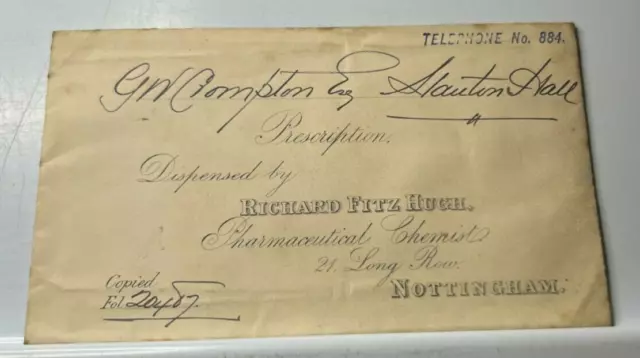 TELEPHONE No. 884.
G W Crompton Esq Stanton Hall
Prescription.
Dispensed by
RICHARD FITZ HUGH.
Pharmaceutical Chemist
21. Long Row.
NOTTINGHAM.
Copied
Fol. 20407